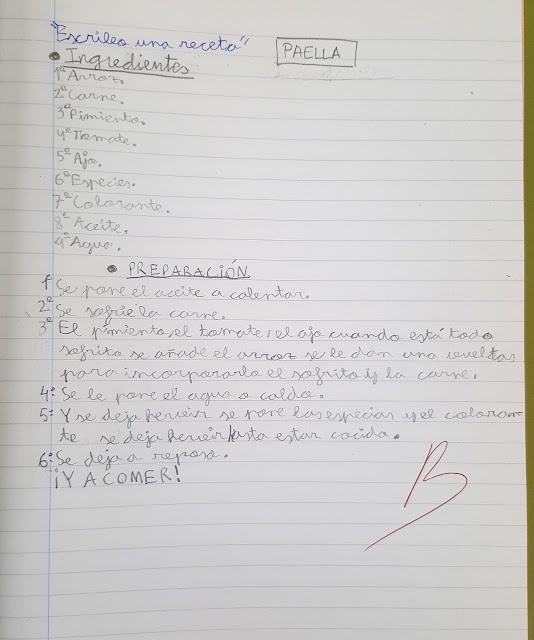 "Escribeo una receta"
PAELLA
• Ingredientes
1º Arroz.
2º Carne.
3º Pimiento.
4º Tomate.
5º Ajo.
6º Especies.
7º Colorante.
8º Aceite.
9º Agua.
• PREPARACIÓN
1 Se pone el aceite a calentar.
2º Se sofrie la carne.
3º El pimiento, el tomate, el ajo cuando está todo
sofrito se añade el arroz se le dan una vueltas
para incorporarlo el sofrito y la carne.
4º Se le pone el agua o caldo.
5º Y se deja hervir se pone las especias y el coloran-
te se deja hervir hasta estar cocido.
6º Se deja a reposo.
¡Y A COMER!
B